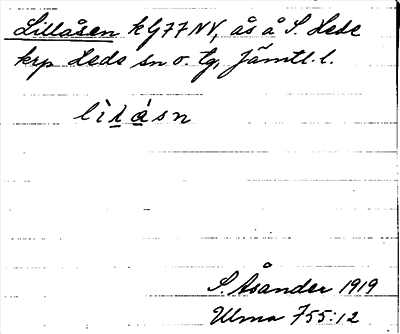 Lillåsen k G77NV, ås å S. Hede
krp Hede sn o. tg, Jämtl. l.
lìlásn
S. Åsander 1919
Ulma 755:12